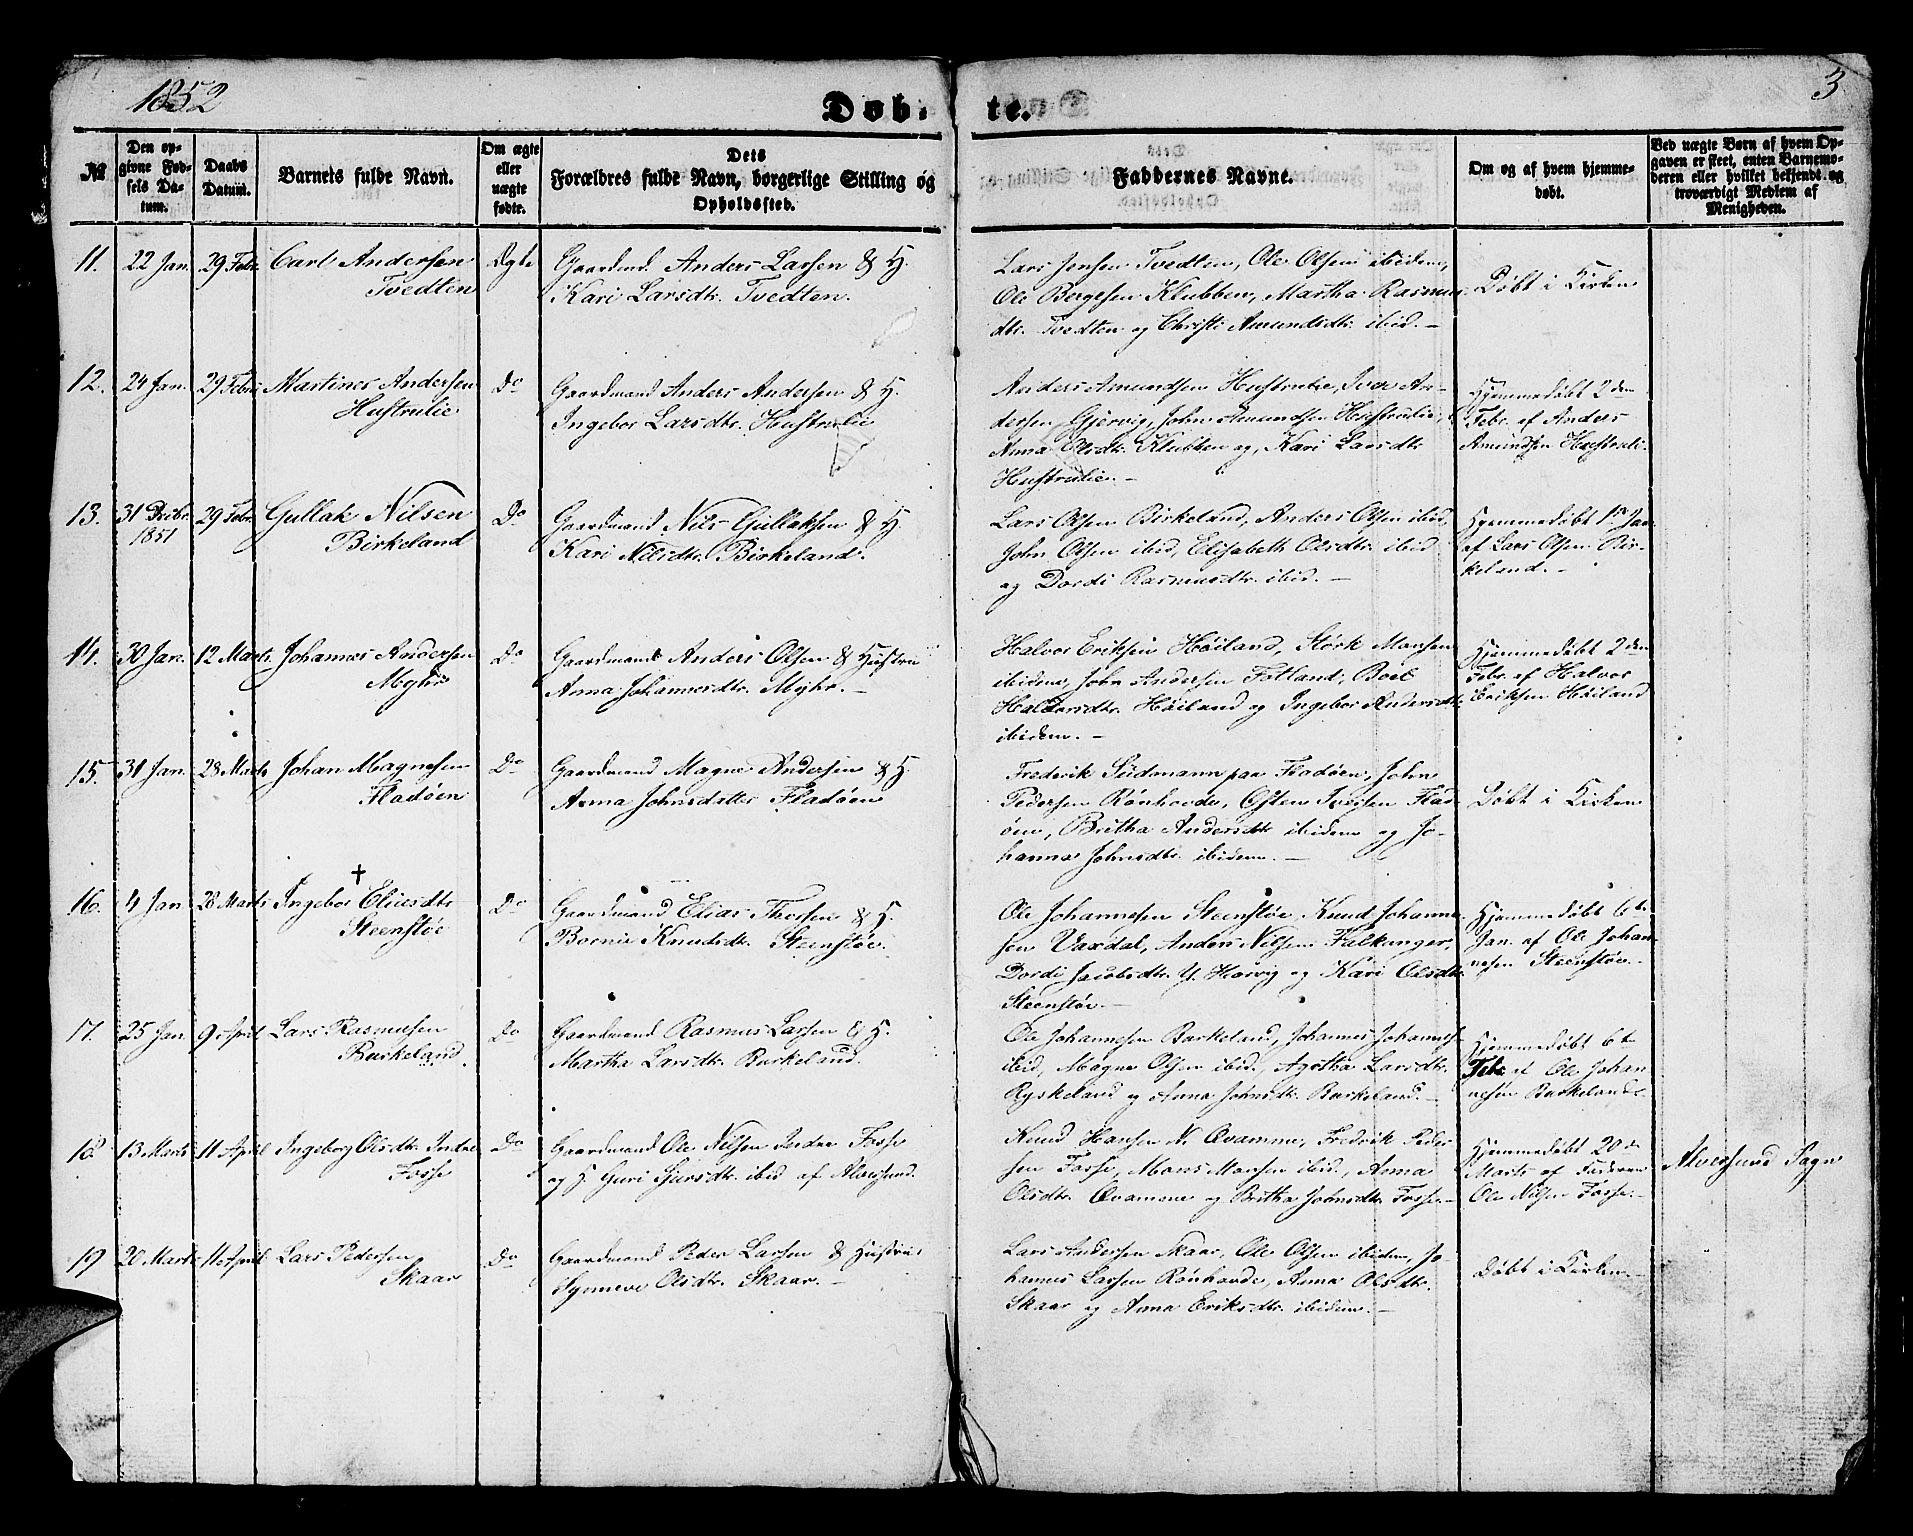 1852
Døbte.
3
№
Den opgivne Fødsels Datum.
Daabs Datum.
Barnets fulde Navn.
Om ægte eller uægte fødte.
Dets Forældres fulde Navn, borgerlige Stilling og Opholdssted.
Faddernes Navne.
Om og af hvem hjemmedøbt.
Ved uægte Børn af hvem Opgaven er skeet, enten Barnemoderen eller hvilket bekjendt og troværdigt Medlem af Menigheden.
11. 22 Jan. 29 Febr. Carl Andersen
Tvedten
Ægte
Gaardmd Anders Larsen & H.
Kari Larsdtr. Tvedten.
Lars Jensen Tvedten, Ole Olsen ibidem,
Ole Børgesen Klubben, Martha Rasmus
dtr. Tvedten og Christi Amundsdtr. ibid.—
Døbt i Kirken
12. 24 Jan. 29 Febr. Martines Andersen
Hustrulie
Do
Gaardmand Anders Andersen & H.
Ingebor Larsdtr. Hustrulie
Anders Amundsen Hustrulie, Iver An-
dersen Gjervig, John Amundsen Hustrulie,
Anna Olsdtr. Klubben og Kari Larsdtr
Hustrulie.—
Hjemmedøbt 2den
Febr. af Anders
Amundsen Hustruli-
13. 31 Decbr. 29 Febr. Gullak Nilsen
1851
Birkeland
Do
Gaardmand Nils Gullaksen & H.
Kari Nilsdtr. Birkeland.
Lars Olsen Birkeland, Anders Olsen ibid,
John Olsen ibid, Elisabeth Olsdtr. ibid
og Dordi Rasmusdtr. ibid.—
Hjemmedøbt 1st Jan
af Lars Olsen Bir-
keland.—
14. 30 Jan. 12 Marts. Johannes Andersen
Myhr
Do
Gaardmand Anders Olsen & Hustru
Anna Johannesdtr. Myhr.—
Halvor Eriksen Høiland, Størk Monsen
ibidem, John Andersen Fotland, Boel
Halvorsdtr. Høiland og Ingebor Andersdtr.
ibidem.—
Hjemmedøbt 2den
Febr. af Halvor
Eriksen Høiland
15. 31 Jan. 28 Marts Johan Magnesen
Fladøen
Do
Gaardmand Magne Andersen & H.
Anna Johnsdatter Fladøen
Frederik Südmann paa Fladøen, John
Pedersen Rønhovde, Østen Iversen Flad
øen, Britha Andersdtr ibidem og Jo-
hanna Johnsdtr. ibidem.—
Døbt i Kirken
✝
16. 4 Jan. 28 Marts Ingebor Eliesdtr
Steenstøe
Do
Gaardmand Elias Thossen & H.
Bornie Knudsdtr. Steenstøe.
Ole Johannesen Steenstøe, Knud Johanne-
sen Vaxdal, Anders Nilsen Falkanger,
Dordi Jacobsdtr. Y. Hervig og Kari Olsdtr.
Steenstøe.—
Hjemmedøbt 6te
Jan. af Ole Johan-
nesen Steenstøe.
17. 25 Jan. 9 April. Lars Rasmusen
Burkeland.
Do
Gaardmand Rasmus Larsen & H.
Martha Larsdtr. Burkeland.
Ole Johannesen Burkeland, Johannes Johannes
ibid, Magne Olsen ibid., Agetha Larsdtr.
Ryskeland og Anna Johnsdtr. Burkeland.—
Hjemmedøbt 6te
Febr. af Ole Johan
nesen Burkeland
18. 13 Marts 11 April Ingeborg Olsdtr. Indre
Fosse
Do
Gaardmand Ole Nilsen Indre Fosse
og H. Guri Sjursdtr. ibid af Alversund.
Knud Hansen N. Qvamme, Fredrik Peder
sen Fosse, Mons Monsen ibid., Anna
Olsdtr. Qvamme og Britha Johnsdtr. Fosse.—
Hjemmedøbt 20de
Marts af Faderen
Ole Nilsen Fosse.—
Alversund Sogn
19 20 Marts 11 April. Lars Pedersen
Skaar
Do
Gaardmand Peder Larsen & Hustrue
Synneve Olsdtr. Skaar.—
Lars Andersen Skaar, Ole Olsen ibidem, Jo-
hannes Larsen Rønhovde, Anna Olsdtr.
Skaar og Anna Eriksdtr. ibidem.—
Døbt i Kirken.—